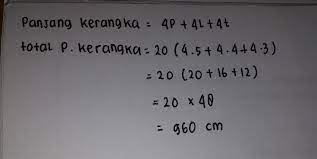 Panjang kerangka = 4P + 4l + 4t
total P. kerangka = 20 (4.5 + 4.4 + 4.3)
= 20 (20 + 16 + 12)
= 20 × 48
= 960 cm